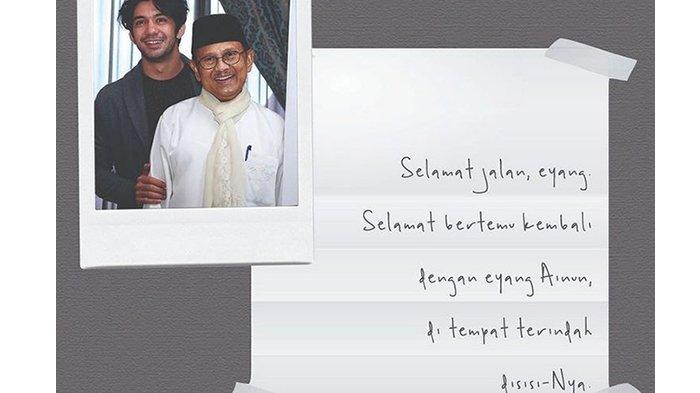 Selamat jalan, eyang.
Selamat bertemu kembali
dengan eyang Ainun,
di tempat terindah
disisi-Nya.